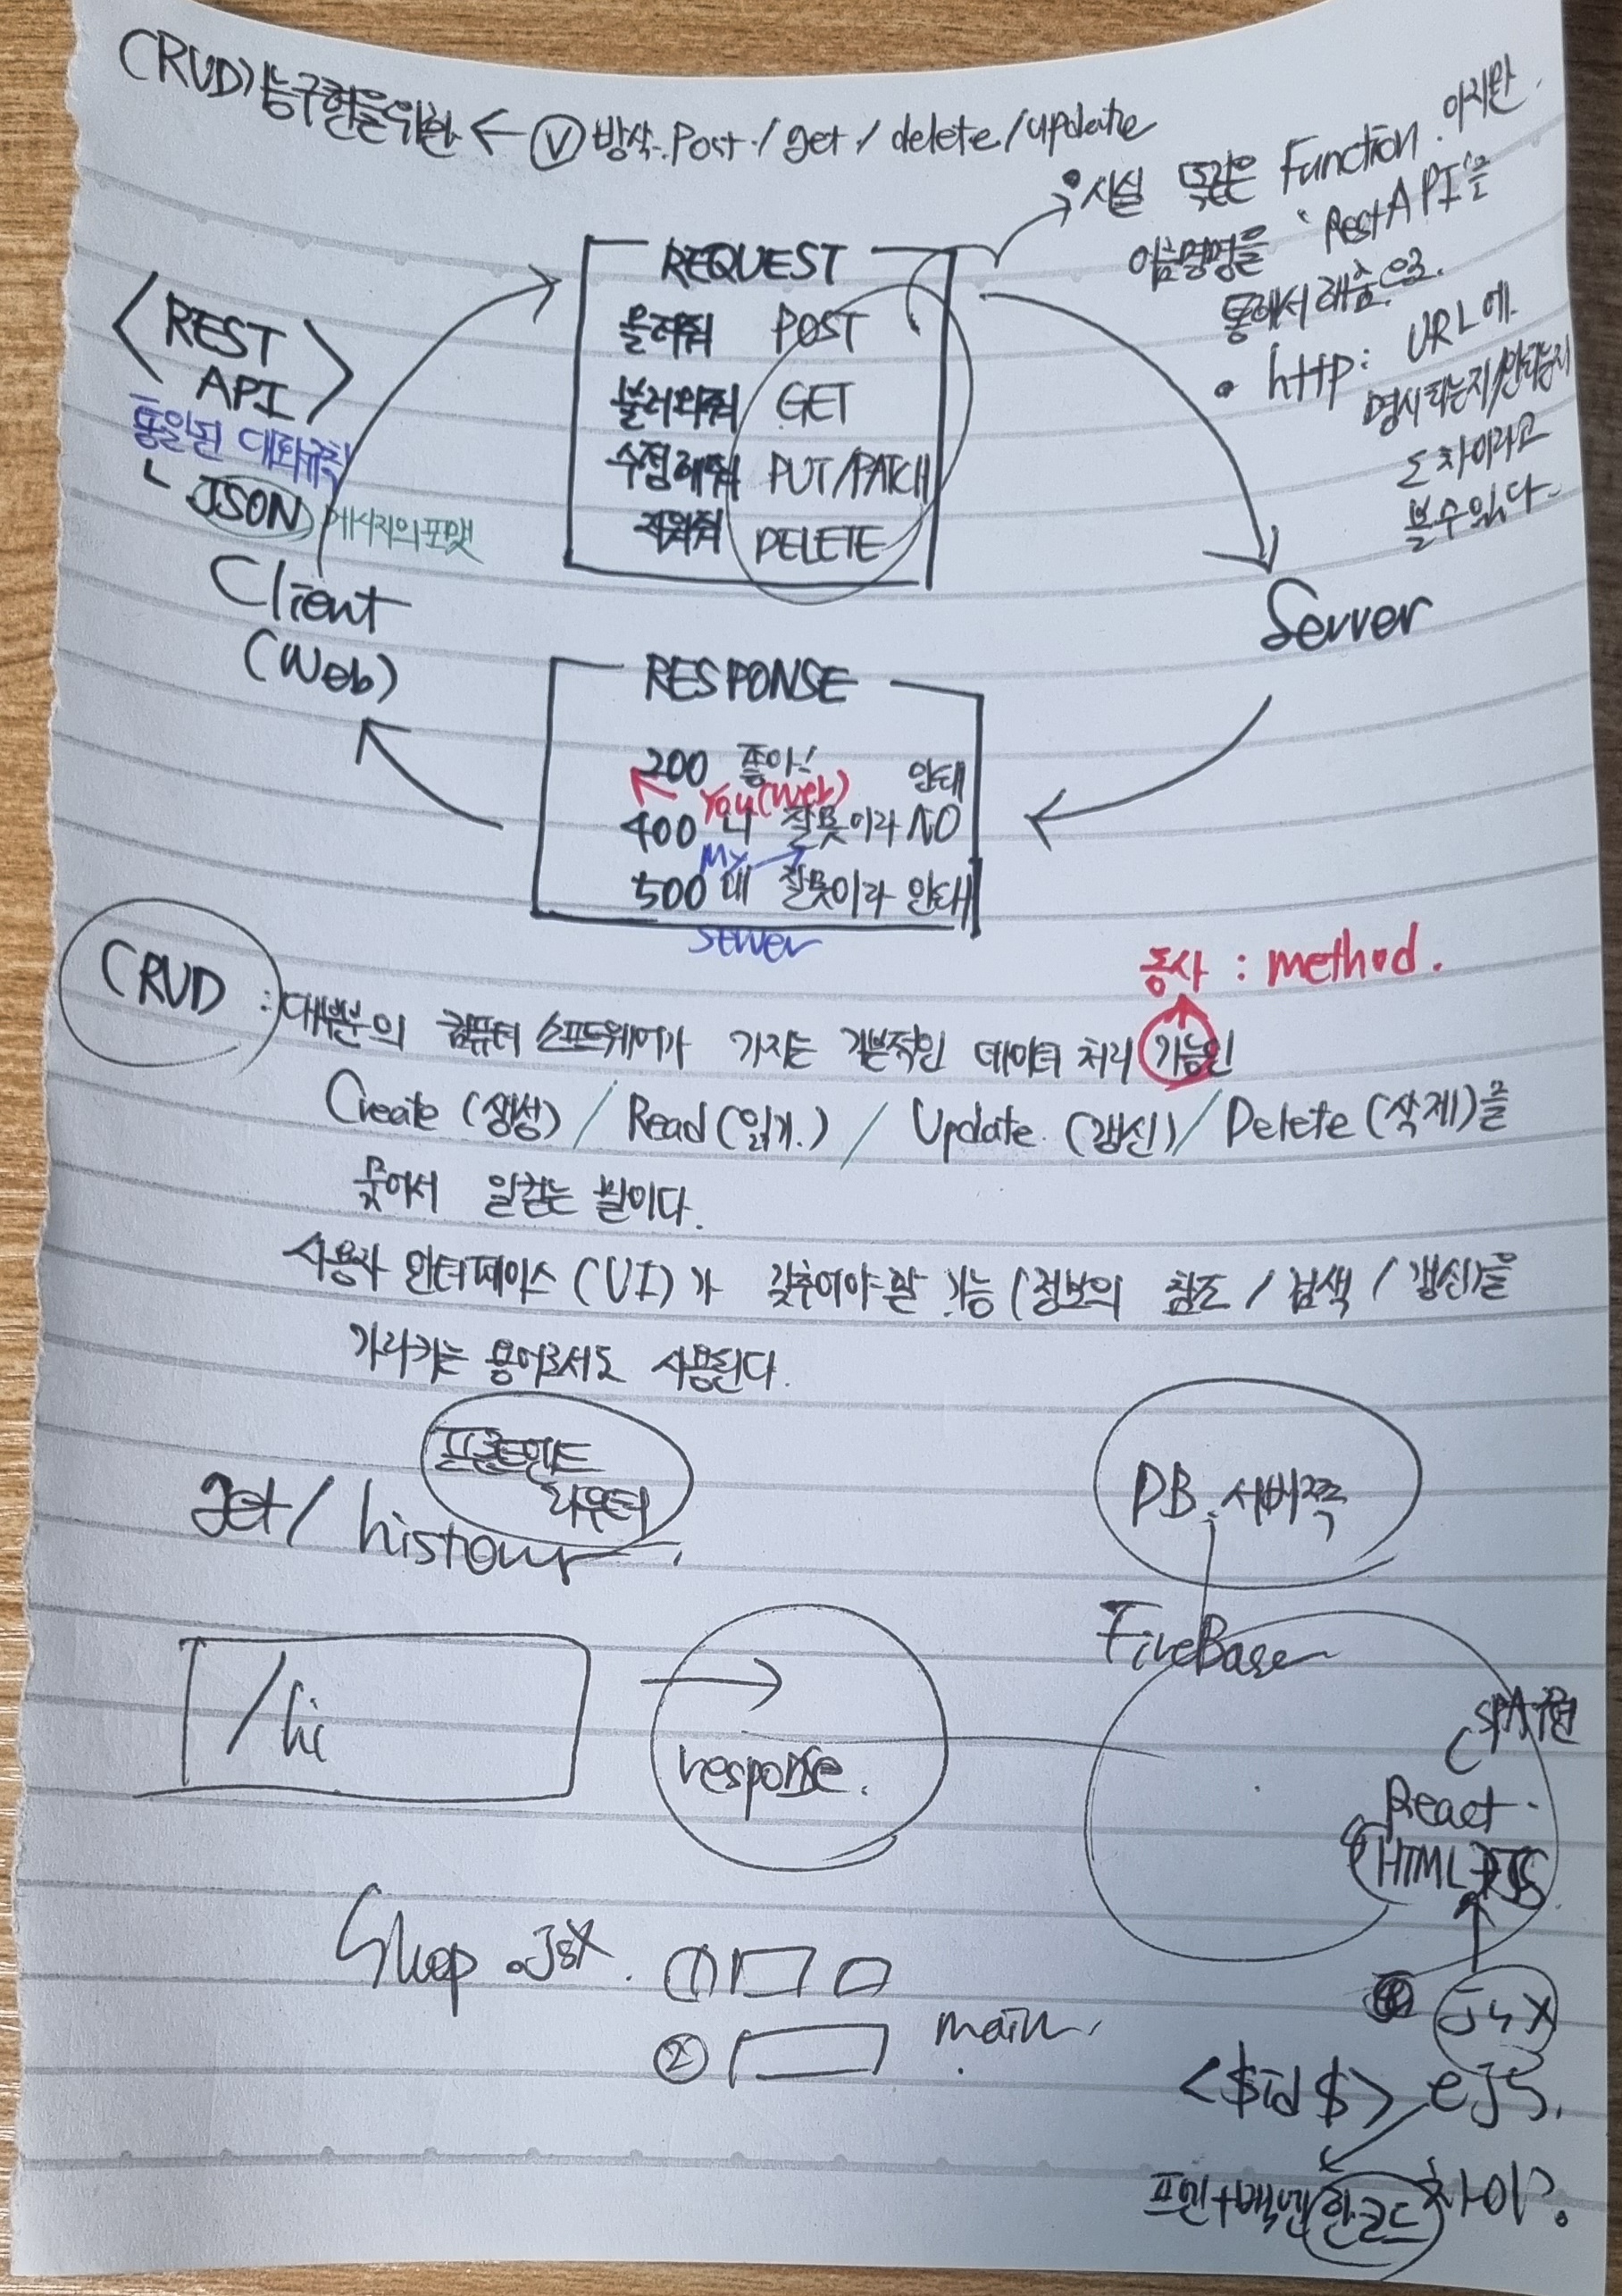 CRUD기능구현을위한 ← Ⓥ 방식. Post / get / delete / update
• 사실 똑같은 Function. 하지만
이름명명을 'Rest API'를
통해서 해줌으로.
• http: URL에
명시되는지/안되는지
도 차이라고
볼수있다.
<REST
API>
통일된 대화규칙
ㄴ JSON 메시지의포맷
Client
(Web)
REQUEST
올려줘 POST
불러와줘 GET
수정해줘 PUT/PATCH
지워줘 DELETE
Server
RESPONSE
200 좋아!
You(Web) 안돼
400 너 잘못이라 NO
My
500 내 잘못이라 안돼
server
동사 : method.
CRUD : 대부분의 컴퓨터 소프트웨어가 가지는 기본적인 데이터 처리 기능인
Create (생성) / Read (읽기.) / Update (갱신) / Delete (삭제)를
묶어서 일컫는 말이다.
사용자 인터페이스 (UI)가 갖추어야할 기능 (정보의 참조 / 검색 / 갱신)을
가리키는 용어로서도 사용된다.
프론트엔드
라우터
get/
DB 서버쪽
FireBase
/hi
→ response.
SPA구현
React.
HTML
Shop .Jsx.
① 
② main.
Jsx
<$id$> eJS.
프엔+백엔 한코드 차이?